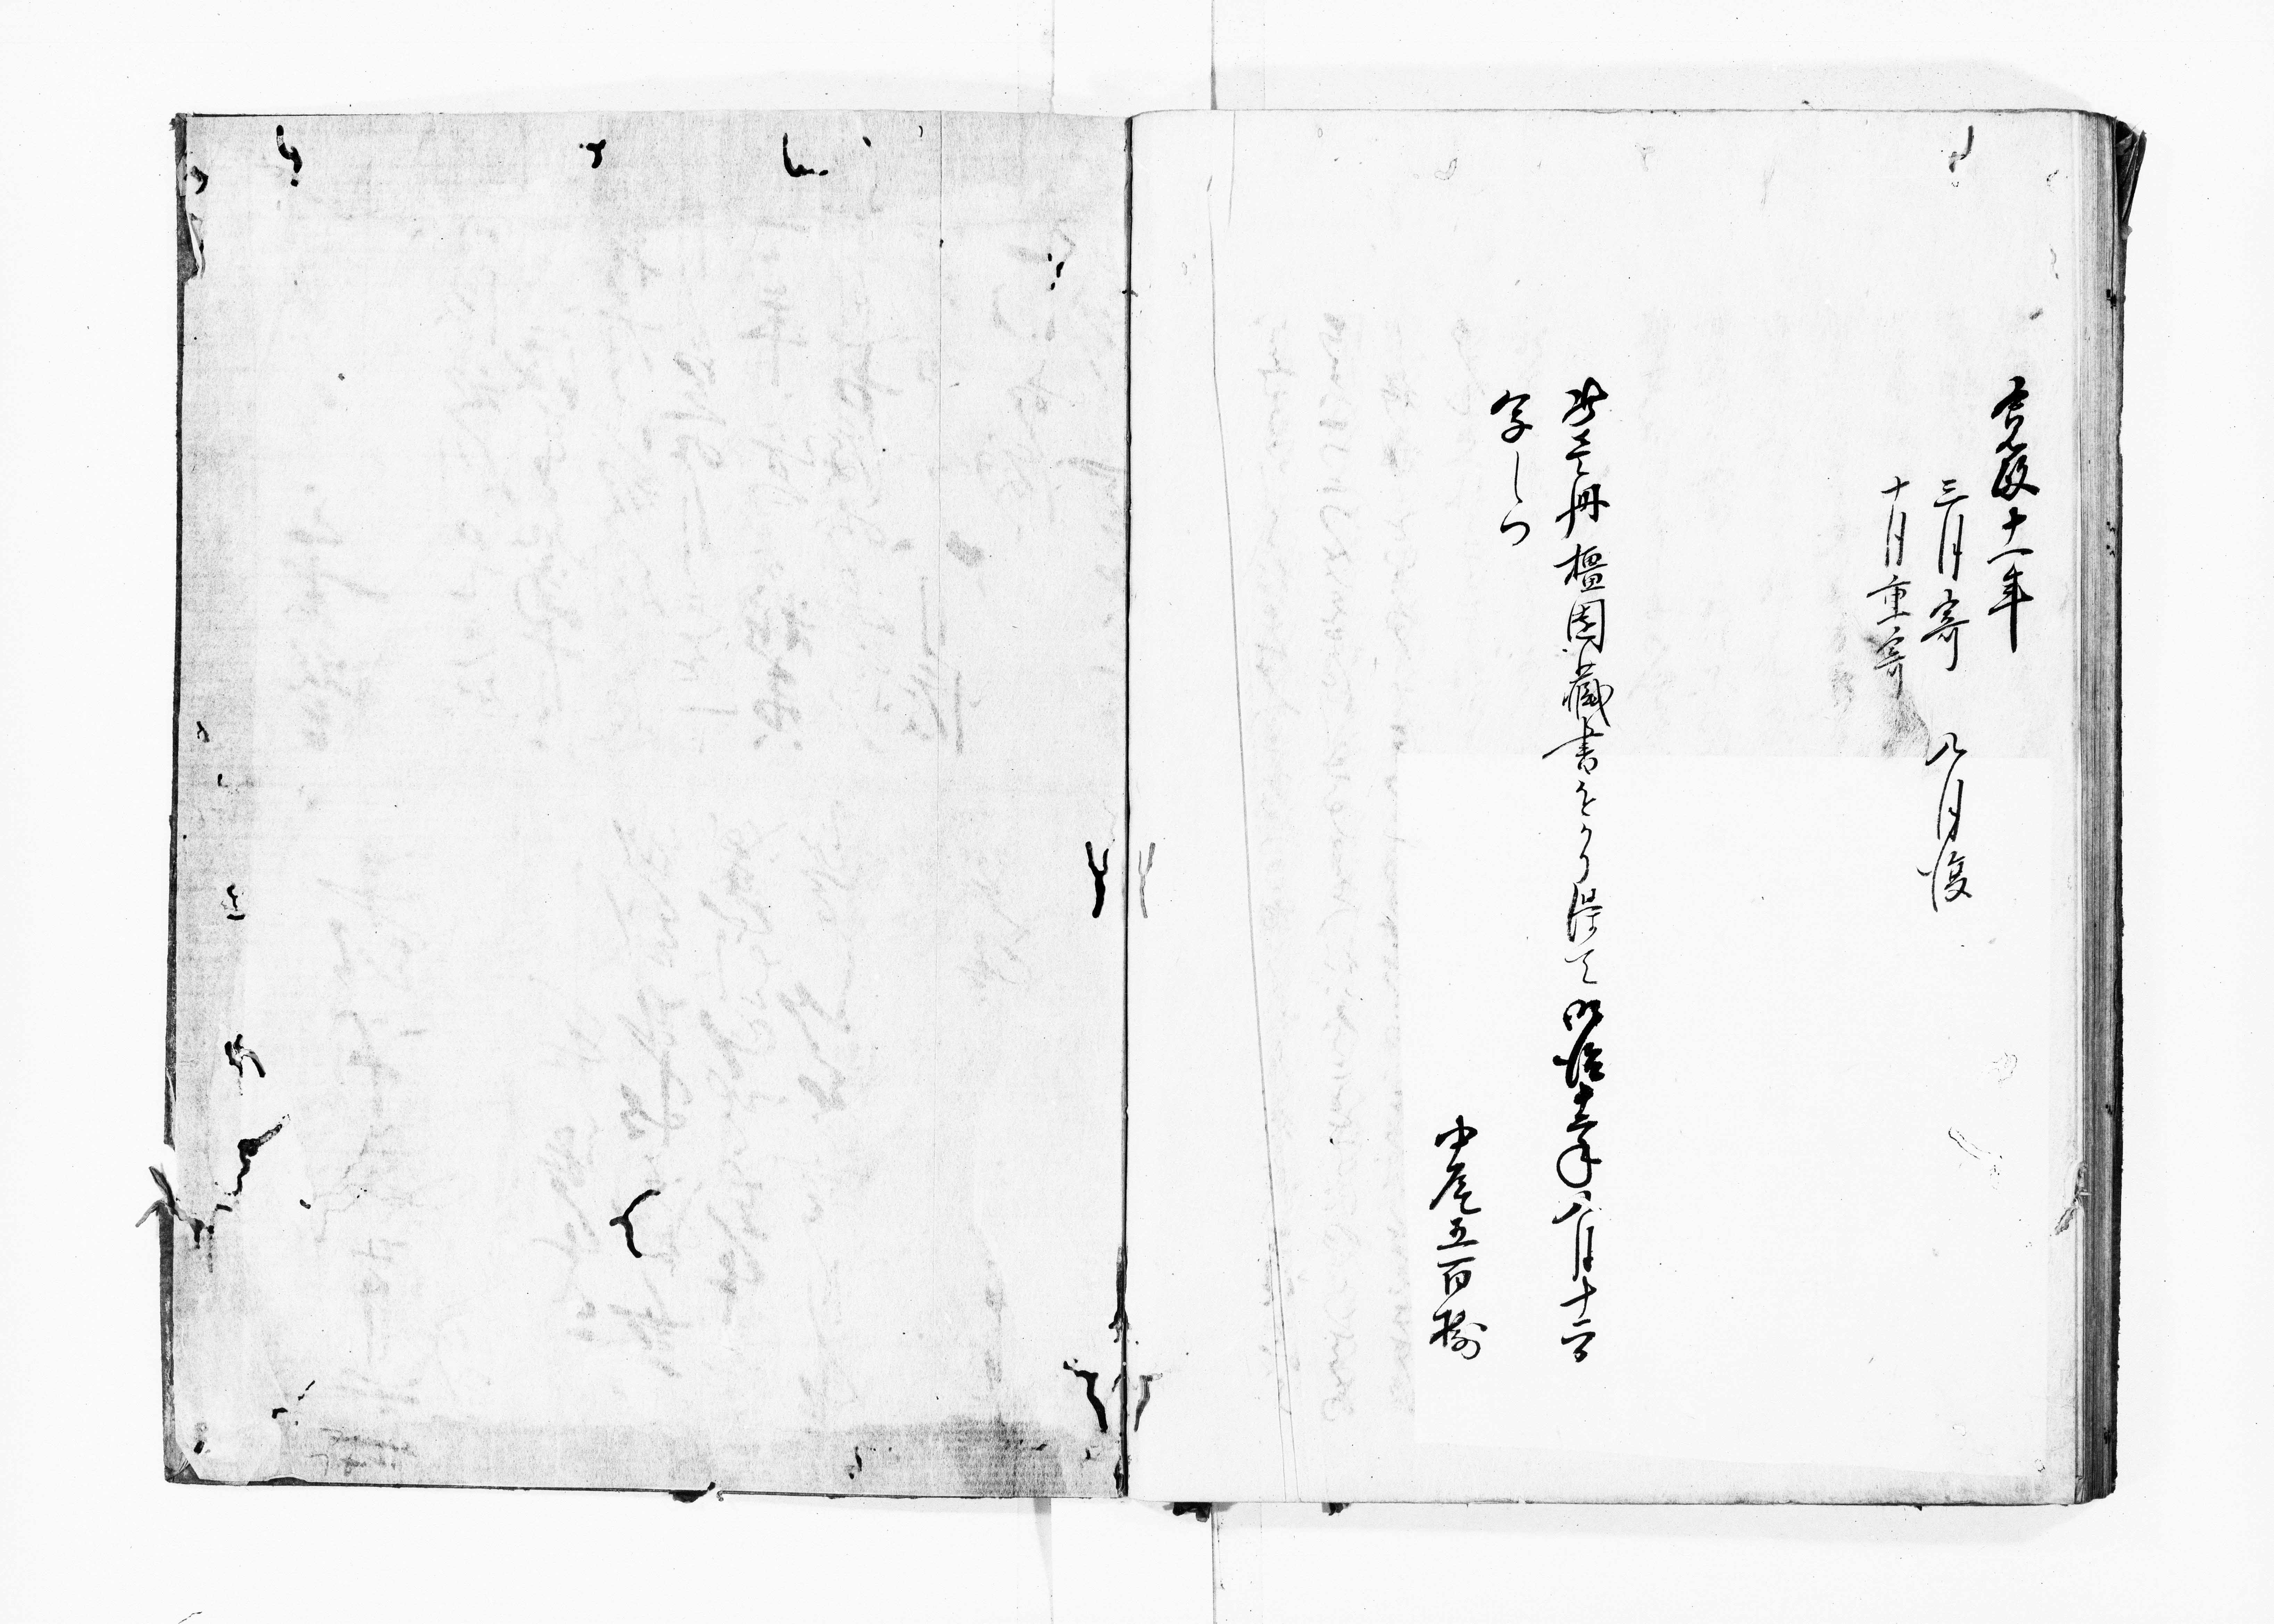 寛政十一年
三月寄　八月復
十月重寄
此壱冊橿園蔵書をかり得て明治十三年八月十二日
写しつ
中尾五百樹